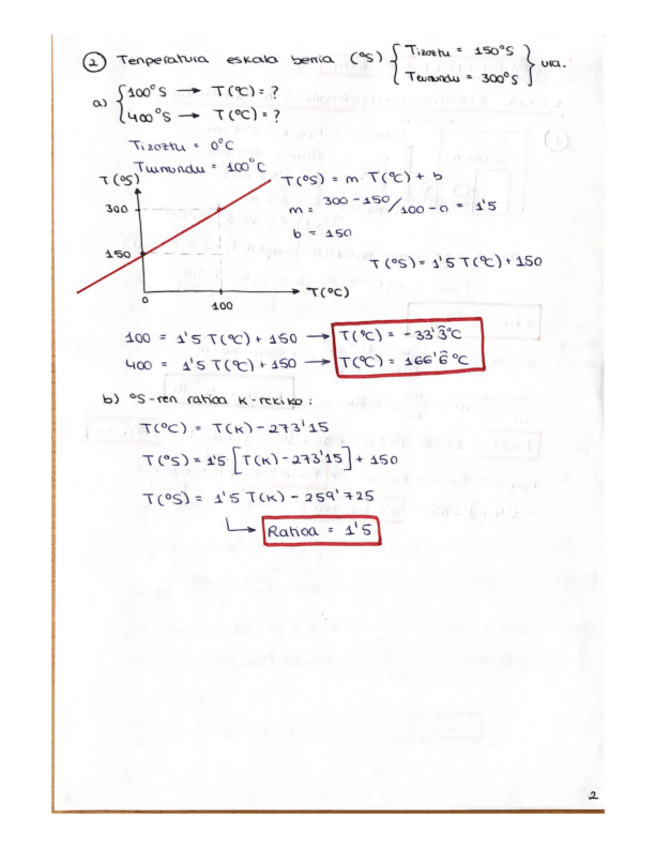 2 Tenperatura eskala berria (ºS) { Tizoztu = 150ºS
Turmundu = 300ºS } ura.
a) { 100ºS → T(ºC) = ?
400ºS → T(ºC) = ?
Tizoztu = 0ºC
Turmundu = 100ºC
T(ºS)
300
150
0
100
T(ºC)
T(ºS) = m · T(ºC) + b
m = 300 - 150 / 100 - 0 = 1'5
b = 150
T(ºS) = 1'5 T(ºC) + 150
100 = 1'5 · T(ºC) + 150 → T(ºC) = -33'3̂ ºC
400 = 1'5 T(ºC) + 150 → T(ºC) = 166'6̂ ºC
b) ºS-ren ratioa K-rekiko :
T(ºC) = T(K) - 273'15
T(ºS) = 1'5 [T(K) - 273'15] + 150
T(ºS) = 1'5 T(K) - 259'725
↳ Ratioa = 1'5
2